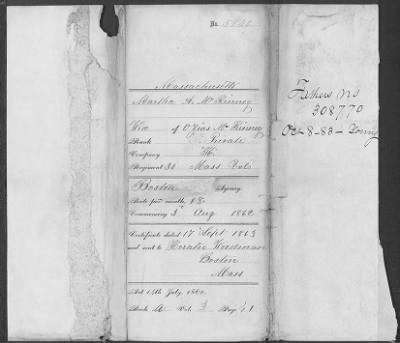 No. 
Massachusetts
Martha A. McKinney
Wid of Ozias McKinney
Rank Private
Company H.
Regiment 30 Mass Vols
Boston Agency.
Rate per month, $8
Commencing 3d Aug 1862
Certificate dated 17 Sept 1863
and sent to Horatio Woodman
Boston
Mass
Act 14th July, 1862.
Book A Vol. 3 Page
Fathers No
308770
Oct-8-83-